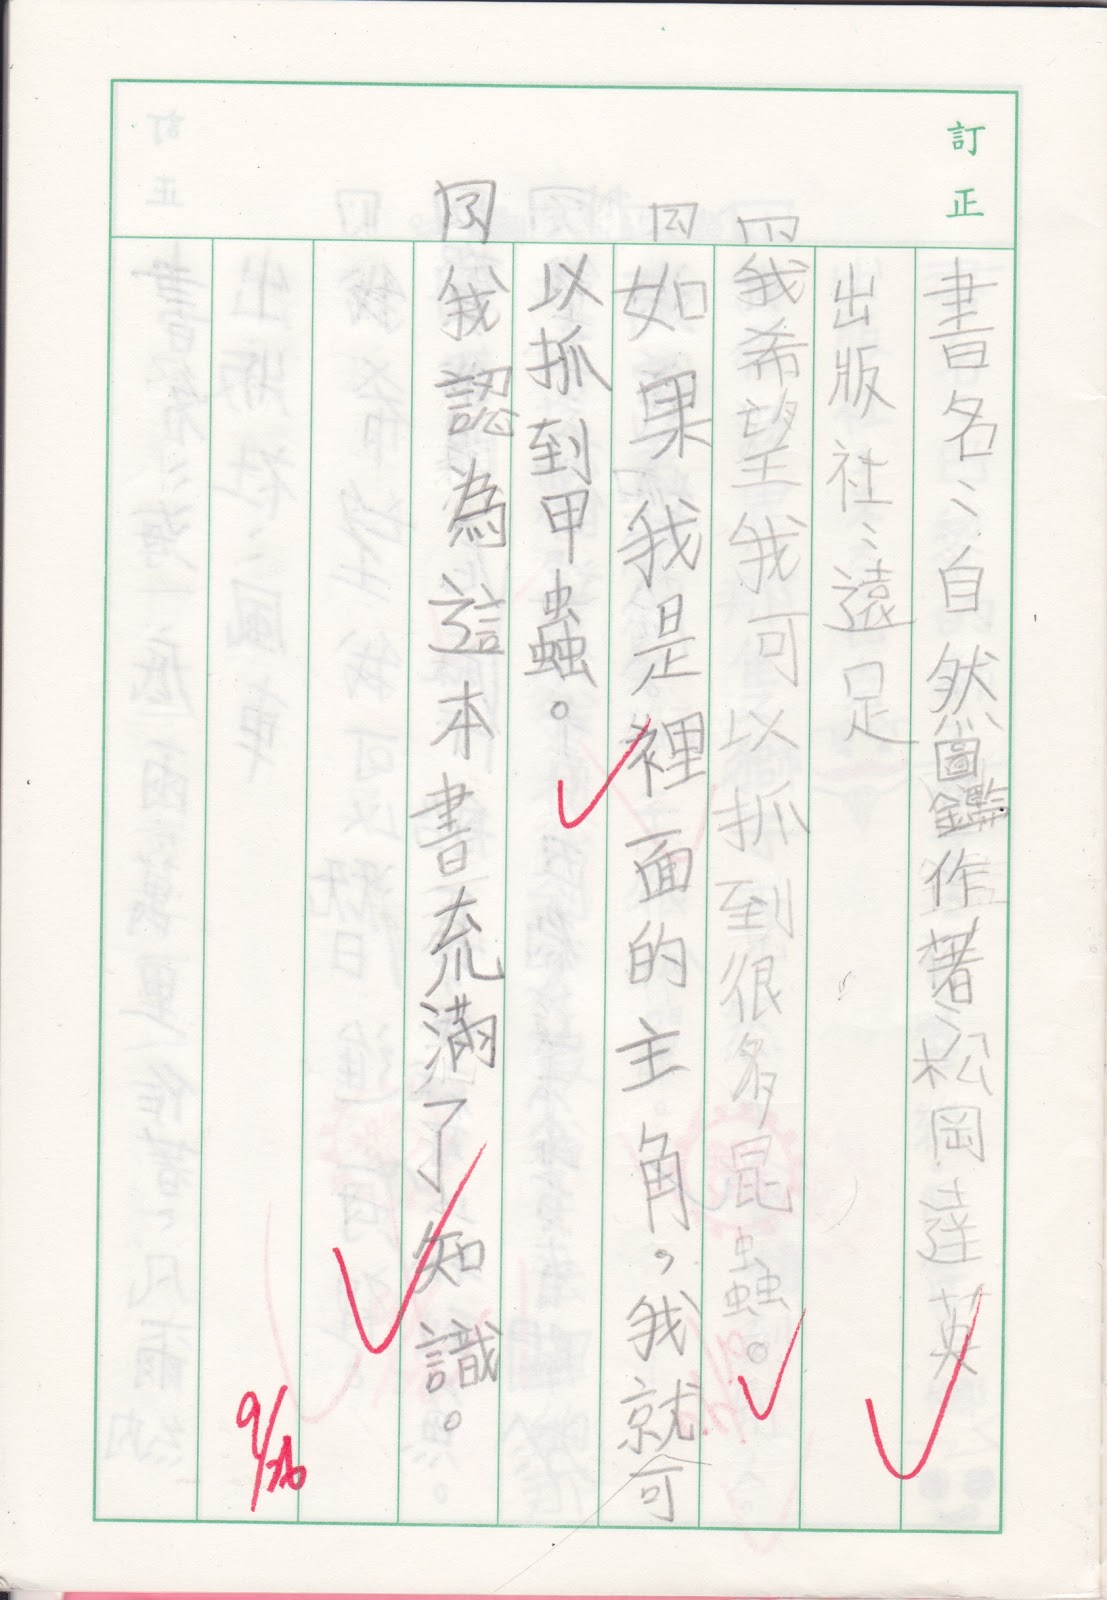 訂正
書名：自然圖鑑作著：松岡達英
出版社：遠足
我希望我可以抓到很多昆蟲。
如果我是裡面的主角，我就可
以抓到甲蟲。
我認為這本書充滿了知識。